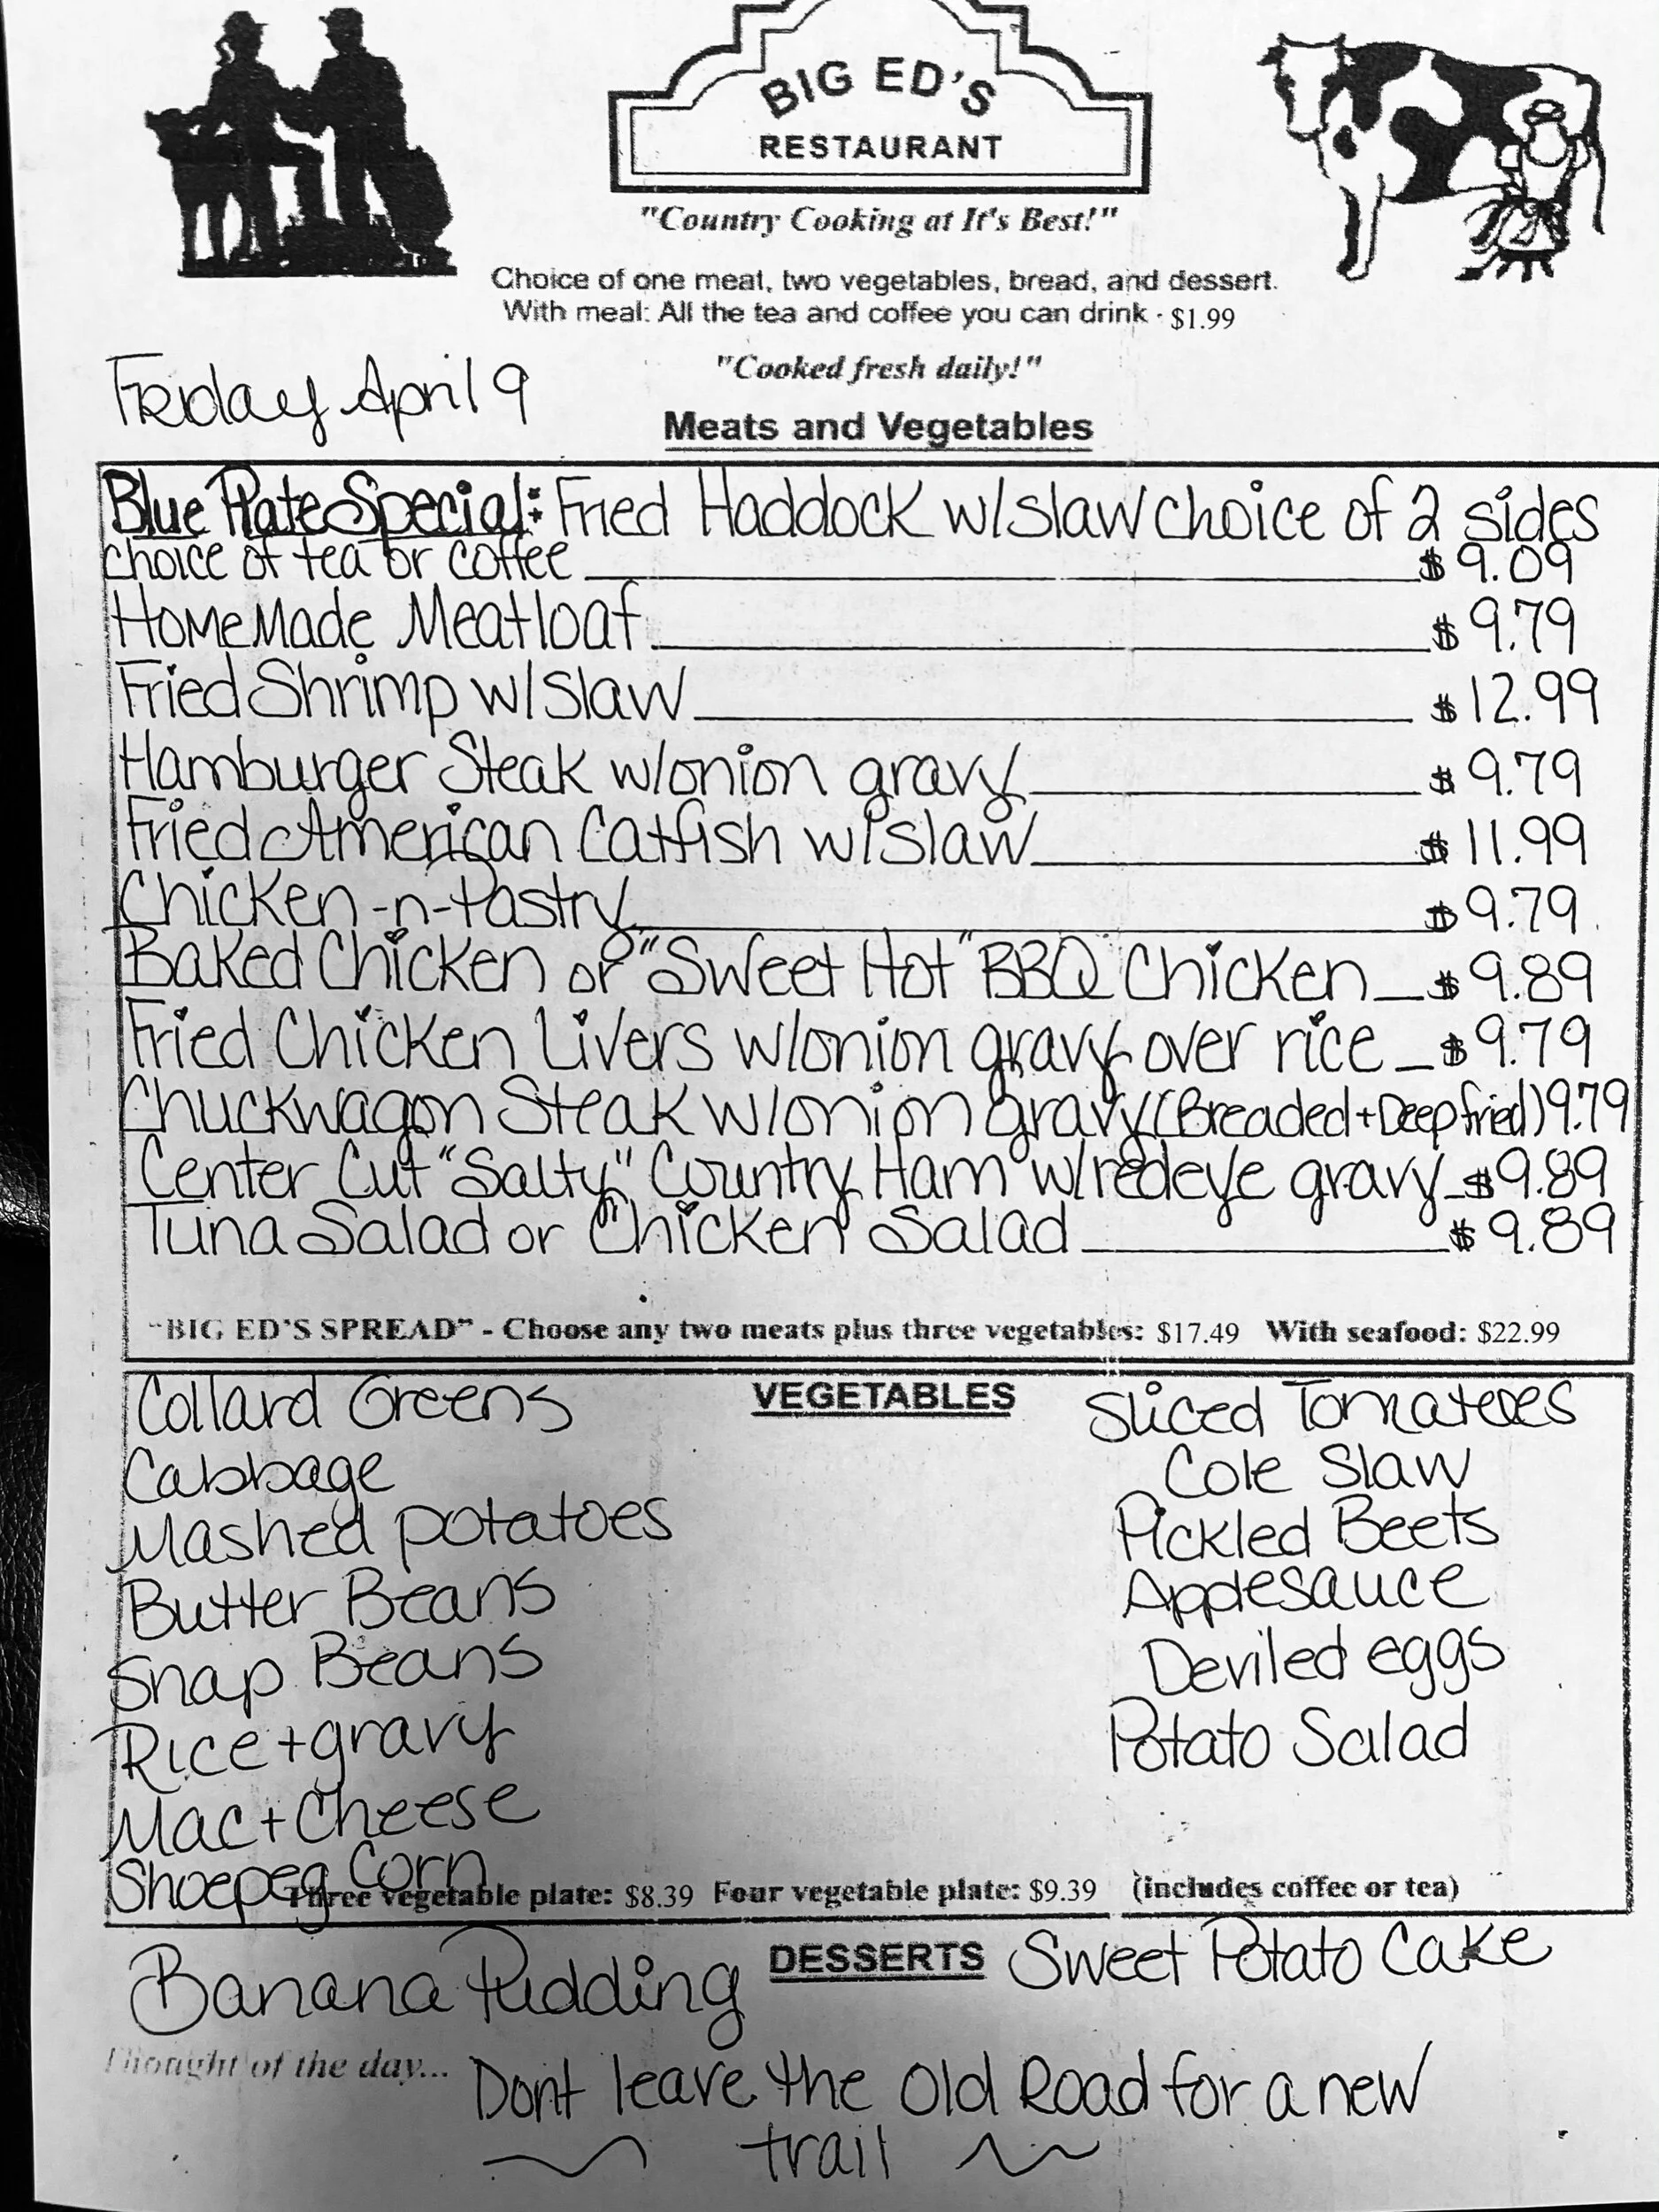 BIG ED'S
RESTAURANT
"Country Cooking at It's Best!"
Choice of one meat, two vegetables, bread, and dessert.
With meal: All the tea and coffee you can drink - $1.99
"Cooked fresh daily!"
Friday April 9
Meats and Vegetables
Blue Plate Special: Fried Haddock w/slaw choice of 2 sides
choice of tea or coffee $9.09
HomeMade Meatloaf $9.79
Fried Shrimp w/slaw $12.99
Hamburger Steak w/onion gravy $9.79
Fried American Catfish w/slaw $11.99
Chicken-n-Pastry $9.79
Baked Chicken or "Sweet Hot" BBQ Chicken $9.89
Fried Chicken Livers w/onion gravy over rice $9.79
Chuckwagon Steak w/onion gravy (Breaded+Deep fried) 9.79
Center Cut "Salty" Country Ham w/redeye gravy $9.89
Tuna Salad or Chicken Salad $9.89
"BIG ED'S SPREAD" - Choose any two meats plus three vegetables: $17.49 With seafood: $22.99
VEGETABLES
Collard Greens
Cabbage
Mashed potatoes
Butter Beans
Snap Beans
Rice+gravy
Mac+Cheese
Shoepeg Corn
Sliced Tomatoes
Cole Slaw
Pickled Beets
Applesauce
Deviled eggs
Potato Salad
Three vegetable plate: $8.39 Four vegetable plate: $9.39 (includes coffee or tea)
DESSERTS
Banana Pudding
Sweet Potato Cake
Thought of the day...
Dont leave the old Road for a new
trail